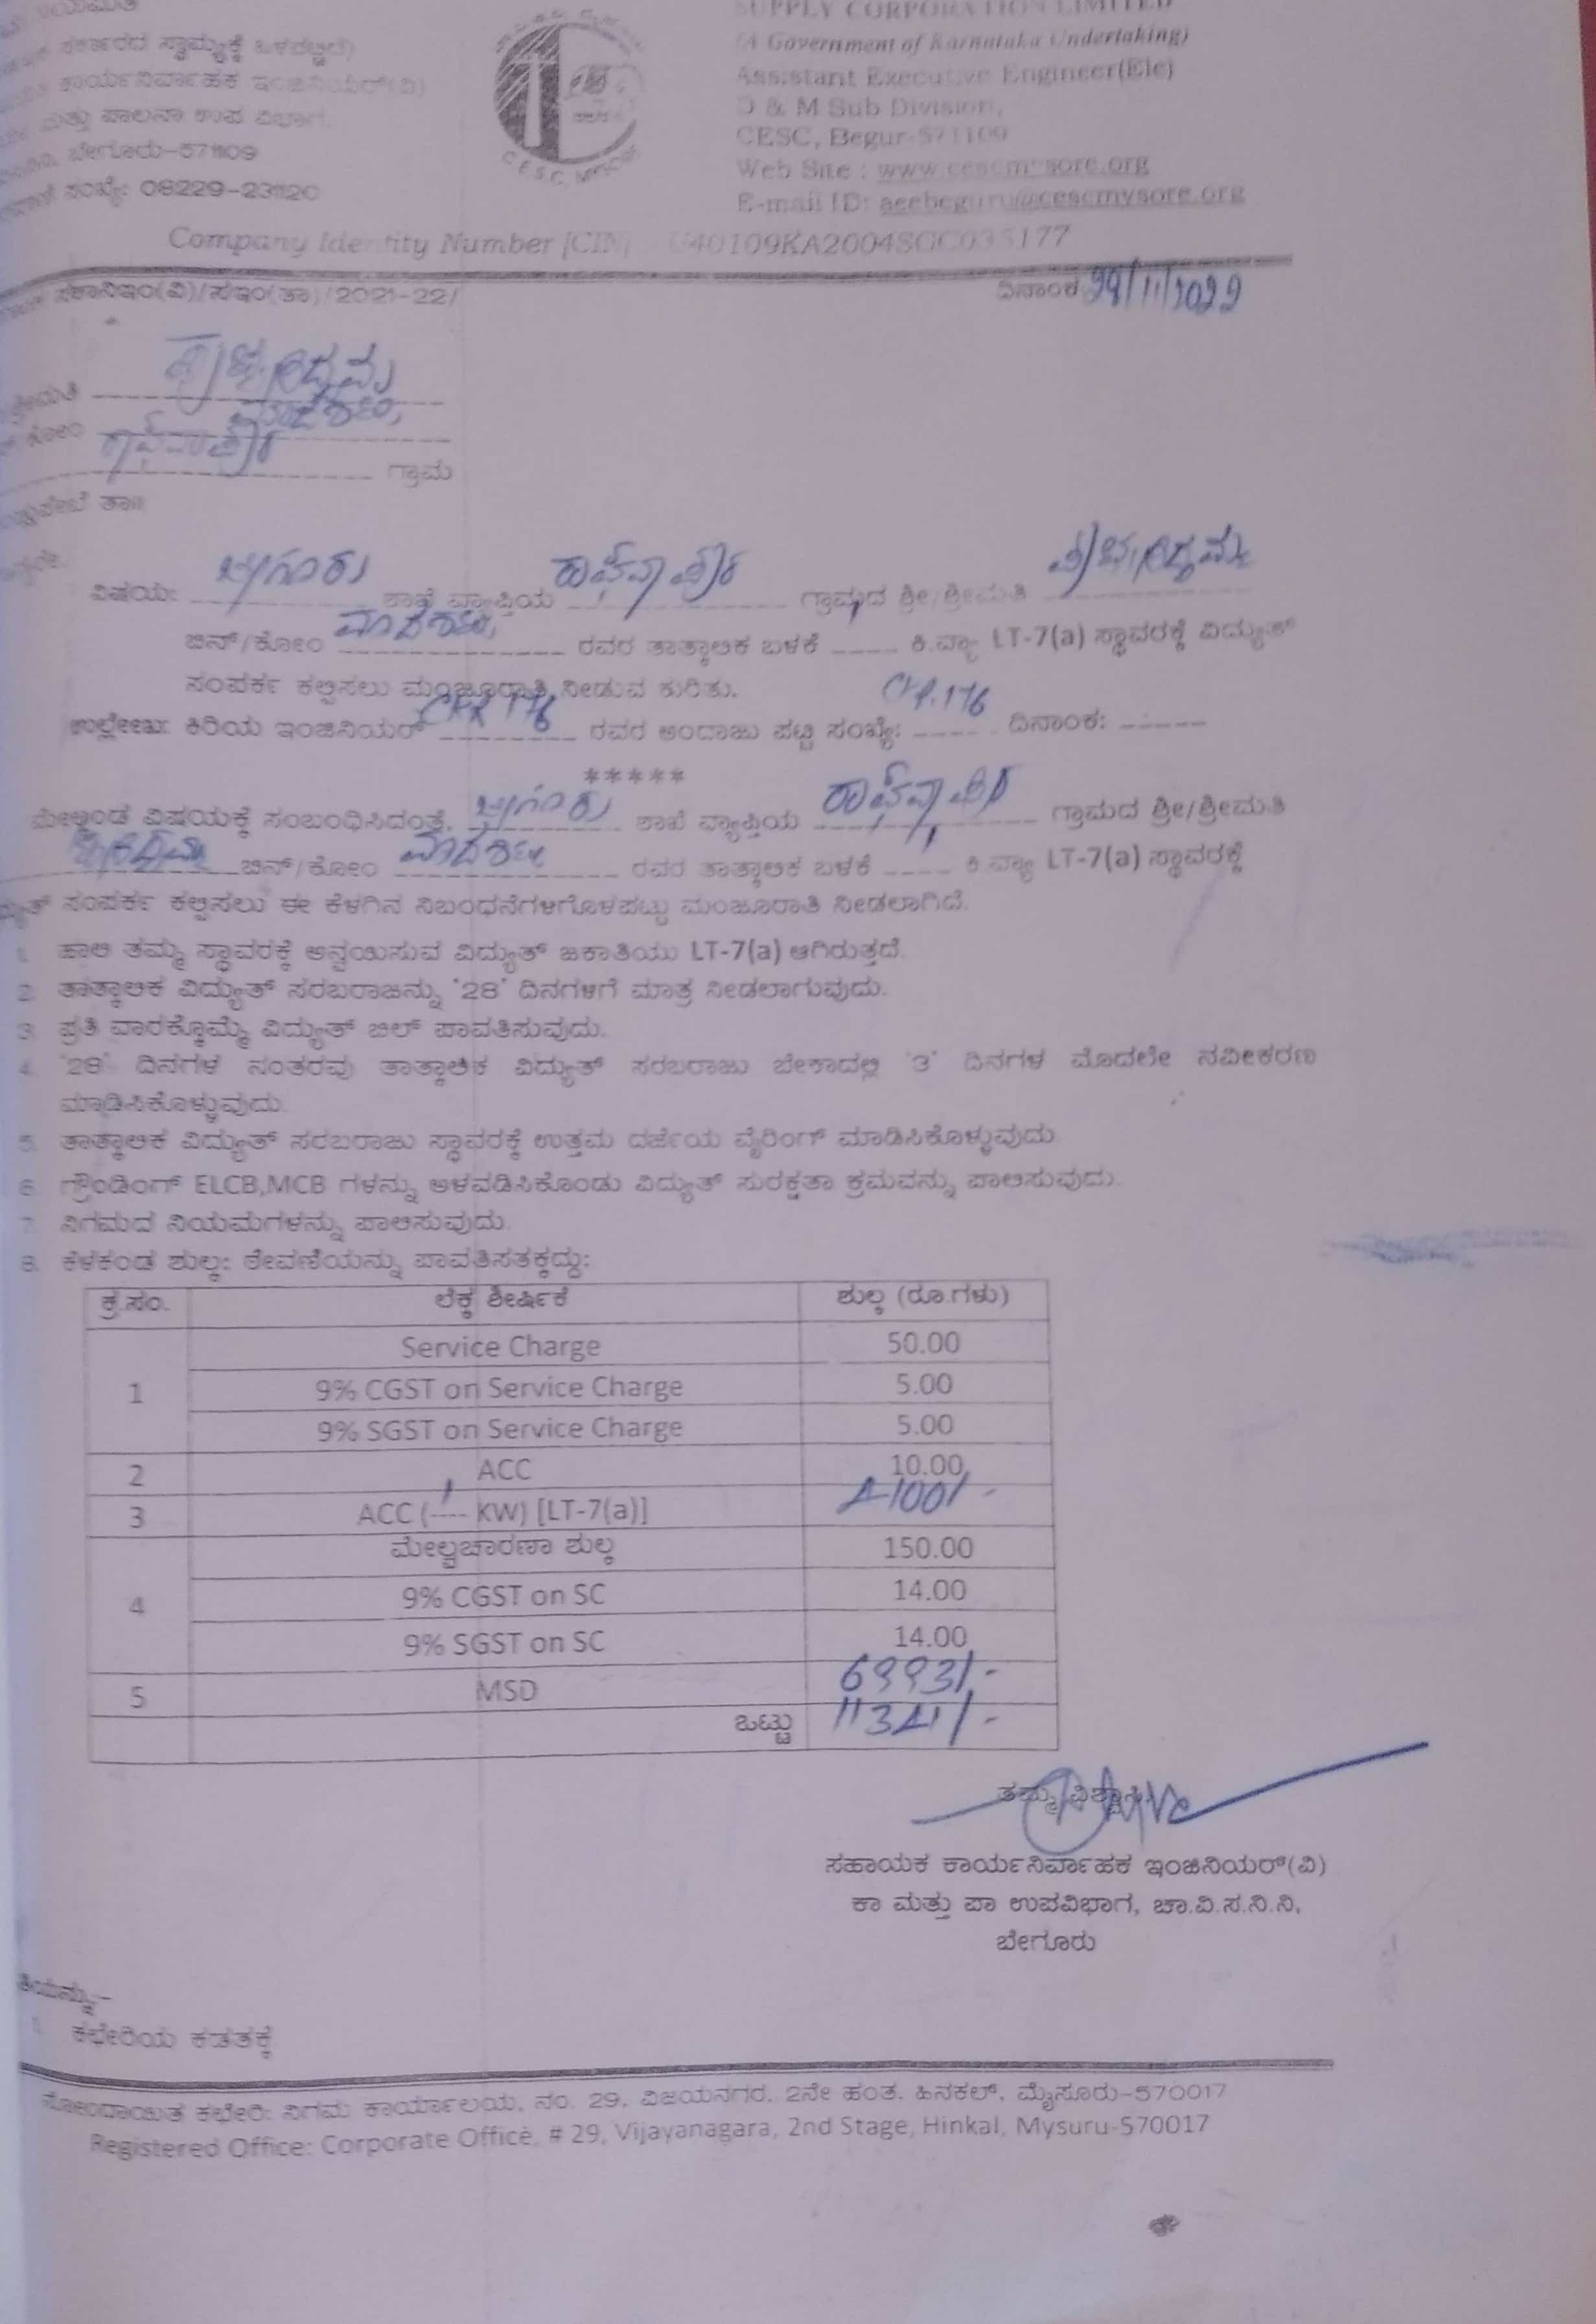 SUPPLY CORPORATION LIMITED
ಸರ್ಕಾರದ ಸ್ವಾಮ್ಯಕ್ಕೆ ಒಳಪಟ್ಟಿದೆ)
(A Government of Karnataka Undertaking)
ಕಾರ್ಯನಿರ್ವಾಹಕ ಇಂಜಿನಿಯರ್(ವಿ)
Assistant Executive Engineer(Ele)
ಮತ್ತು ಪಾಲನಾ ಉಪ ವಿಭಾಗ,
O & M Sub Division,
ಬೇಗೂರು-571109
CESC, Begur-571109
ಸಂಖ್ಯೆ: 08229-231120
Web Site : www.cescmysore.org
E-mail ID: aeebeguru@cescmysore.org
C.E.S.C. MYSORE
Company Identity Number [CIN] U40109KA2004SGC035177
ಸಕಾನಿಇಂ(ವಿ)/ಸಇಂ(ತಾ)/2021-22/
ದಿನಾಂಕ
ಶ್ರೀಮತಿ
ಕೋಂ
ಗ್ರಾಮ
ತಾ॥
ವಿಷಯ: ಬೇಗೂರು ಶಾಖೆ ವ್ಯಾಪ್ತಿಯ ಗ್ರಾಮದ ಶ್ರೀ/ಶ್ರೀಮತಿ
ಬಿನ್/ಕೋಂ ರವರ ತಾತ್ಕಾಲಿಕ ಬಳಕೆ ---- ಕಿ.ವ್ಯಾ LT-7(a) ಸ್ಥಾವರಕ್ಕೆ ವಿದ್ಯುತ್
ಸಂಪರ್ಕ ಕಲ್ಪಿಸಲು ಮಂಜೂರಾತಿ ನೀಡುವ ಕುರಿತು.
ಉಲ್ಲೇಖ: ಕಿರಿಯ ಇಂಜಿನಿಯರ್ ರವರ ಅಂದಾಜು ಪಟ್ಟಿ ಸಂಖ್ಯೆ: ದಿನಾಂಕ: ------
*****
ಮೇಲ್ಕಂಡ ವಿಷಯಕ್ಕೆ ಸಂಬಂಧಿಸಿದಂತೆ, ಬೇಗೂರು ಶಾಖೆ ವ್ಯಾಪ್ತಿಯ ಗ್ರಾಮದ ಶ್ರೀ/ಶ್ರೀಮತಿ
ಬಿನ್/ಕೋಂ ರವರ ತಾತ್ಕಾಲಿಕ ಬಳಕೆ ---- ಕಿ.ವ್ಯಾ LT-7(a) ಸ್ಥಾವರಕ್ಕೆ
ಸಂಪರ್ಕ ಕಲ್ಪಿಸಲು ಈ ಕೆಳಗಿನ ನಿಬಂಧನೆಗಳಿಗೊಳಪಟ್ಟು ಮಂಜೂರಾತಿ ನೀಡಲಾಗಿದೆ.
1. ಹಾಲಿ ತಮ್ಮ ಸ್ಥಾವರಕ್ಕೆ ಅನ್ವಯಿಸುವ ವಿದ್ಯುತ್ ಜಕಾತಿಯು LT-7(a) ಆಗಿರುತ್ತದೆ.
2. ತಾತ್ಕಾಲಿಕ ವಿದ್ಯುತ್ ಸರಬರಾಜನ್ನು '28' ದಿನಗಳಿಗೆ ಮಾತ್ರ ನೀಡಲಾಗುವುದು.
3. ಪ್ರತಿ ವಾರಕ್ಕೊಮ್ಮೆ ವಿದ್ಯುತ್ ಬಿಲ್ ಪಾವತಿಸುವುದು.
4. '28' ದಿನಗಳ ನಂತರವು ತಾತ್ಕಾಲಿಕ ವಿದ್ಯುತ್ ಸರಬರಾಜು ಬೇಕಾದಲ್ಲಿ '3' ದಿನಗಳ ಮೊದಲೇ ನವೀಕರಣ
ಮಾಡಿಸಿಕೊಳ್ಳುವುದು.
5. ತಾತ್ಕಾಲಿಕ ವಿದ್ಯುತ್ ಸರಬರಾಜು ಸ್ಥಾವರಕ್ಕೆ ಉತ್ತಮ ದರ್ಜೆಯ ವೈರಿಂಗ್ ಮಾಡಿಸಿಕೊಳ್ಳುವುದು
6. ಗ್ರೌಂಡಿಂಗ್ ELCB,MCB ಗಳನ್ನು ಅಳವಡಿಸಿಕೊಂಡು ವಿದ್ಯುತ್ ಸುರಕ್ಷತಾ ಕ್ರಮವನ್ನು ಪಾಲಿಸುವುದು.
7. ನಿಗಮದ ನಿಯಮಗಳನ್ನು ಪಾಲಿಸುವುದು.
8. ಕೆಳಕಂಡ ಶುಲ್ಕ: ಠೇವಣಿಯನ್ನು ಪಾವತಿಸತಕ್ಕದ್ದು:
ಕ್ರ.ಸಂ. ಲೆಕ್ಕ ಶೀರ್ಷಿಕೆ ಶುಲ್ಕ (ರೂ.ಗಳು)
Service Charge 50.00
1 9% CGST on Service Charge 5.00
9% SGST on Service Charge 5.00
2 ACC 10.00
3 ACC (---- KW) [LT-7(a)] 4100/-
ಮೇಲ್ವಿಚಾರಣಾ ಶುಲ್ಕ 150.00
4 9% CGST on SC 14.00
9% SGST on SC 14.00
5 MSD 6993/-
ಒಟ್ಟು 11341/-
ತಮ್ಮ ವಿಶ್ವಾಸಿ
ಸಹಾಯಕ ಕಾರ್ಯನಿರ್ವಾಹಕ ಇಂಜಿನಿಯರ್(ವಿ)
ಕಾ ಮತ್ತು ಪಾ ಉಪವಿಭಾಗ, ಚಾ.ವಿ.ಸ.ನಿ.ನಿ,
ಬೇಗೂರು
1. ಕಛೇರಿಯ ಕಡತಕ್ಕೆ
ನೋಂದಾಯಿತ ಕಛೇರಿ: ನಿಗಮ ಕಾರ್ಯಾಲಯ, ನಂ. 29, ವಿಜಯನಗರ, 2ನೇ ಹಂತ, ಹಿನಕಲ್, ಮೈಸೂರು-570017
Registered Office: Corporate Office, # 29, Vijayanagara, 2nd Stage, Hinkal, Mysuru-570017